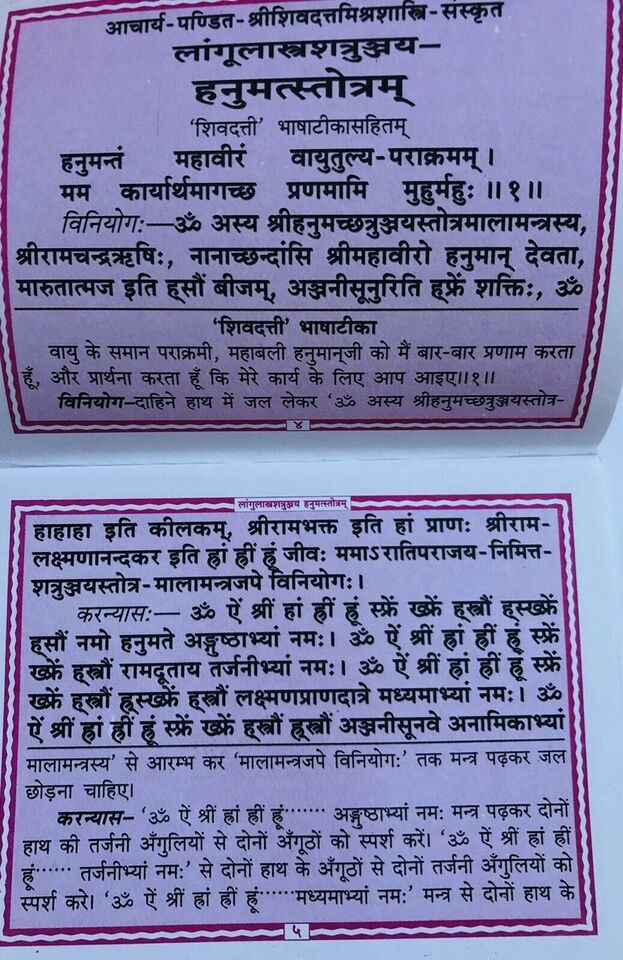 आचार्य-पण्डित-श्रीशिवदत्तमिश्रशास्त्रि-संस्कृत
लांगूलास्त्रशत्रुञ्जय–
हनुमत्स्तोत्रम्
'शिवदत्ती' भाषाटीकासहितम्
हनुमन्तं महावीरं वायुतुल्य-पराक्रमम्।
मम कार्यार्थमागच्छ प्रणमामि मुहुर्मुहुः॥१॥
विनियोगः—ॐ अस्य श्रीहनुमच्छत्रुञ्जयस्तोत्रमालामन्त्रस्य,
श्रीरामचन्द्रऋषिः, नानाच्छन्दांसि श्रीमहावीरो हनुमान् देवता,
मारुतात्मज इति ह्सौं बीजम्, अञ्जनीसूनुरिति ह्फ्रें शक्तिः, ॐ
'शिवदत्ती' भाषाटीका
वायु के समान पराक्रमी, महाबली हनुमान्‌जी को मैं बार-बार प्रणाम करता
हूँ, और प्रार्थना करता हूँ कि मेरे कार्य के लिए आप आइए॥१॥
विनियोग–दाहिने हाथ में जल लेकर 'ॐ अस्य श्रीहनुमच्छत्रुञ्जयस्तोत्र-
४
लांगुलास्त्रशत्रुञ्जय हनुमत्स्तोत्रम्
हाहाहा इति कीलकम्, श्रीरामभक्त इति हां प्राणः श्रीराम-
लक्ष्मणानन्दकर इति ह्रां ह्रीं ह्रूं जीवः ममाऽरातिपराजय-निमित्त-
शत्रुञ्जयस्तोत्र-मालामन्त्रजपे विनियोगः।
करन्यासः— ॐ ऐं श्रीं हां ह्रीं ह्रूं स्फ्रें ख्फ्रें ह्स्त्रौं ह्स्ख्फ्रें
ह्सौं नमो हनुमते अङ्गुष्ठाभ्यां नमः। ॐ ऐं श्रीं ह्रां ह्रीं ह्रूं स्फ्रें
ख्फ्रें ह्स्त्रौं रामदूताय तर्जनीभ्यां नमः। ॐ ऐं श्रीं ह्रां ह्रीं ह्रूं स्फ्रें
ख्फ्रें ह्स्त्रौं ह्रस्ख्फ्रें ह्स्त्रौं लक्ष्मणप्राणदात्रे मध्यमाभ्यां नमः। ॐ
ऐं श्रीं ह्रां ह्रीं ह्रूं स्फ्रें ख्फ्रें ह्स्त्रौं ह्रस्त्रौं अञ्जनीसूनवे अनामिकाभ्यां
मालामन्त्रस्य' से आरम्भ कर 'मालामन्त्रजपे विनियोगः' तक मन्त्र पढ़कर जल
छोड़ना चाहिए।
करन्यास– 'ॐ ऐं श्रीं ह्रां ह्रीं ह्रूं······· अङ्गुष्ठाभ्यां नमः मन्त्र पढ़कर दोनों
हाथ की तर्जनी अँगुलियों से दोनों अँगूठों को स्पर्श करें। 'ॐ ऐं श्रीं ह्रां ह्रीं
ह्रूं······ तर्जनीभ्यां नमः' से दोनों हाथ के अँगूठों से दोनों तर्जनी अँगुलियों को
स्पर्श करे। 'ॐ ऐं श्रीं ह्रां ह्रीं ह्रूं······मध्यमाभ्यां नमः' मन्त्र से दोनों हाथ के
५